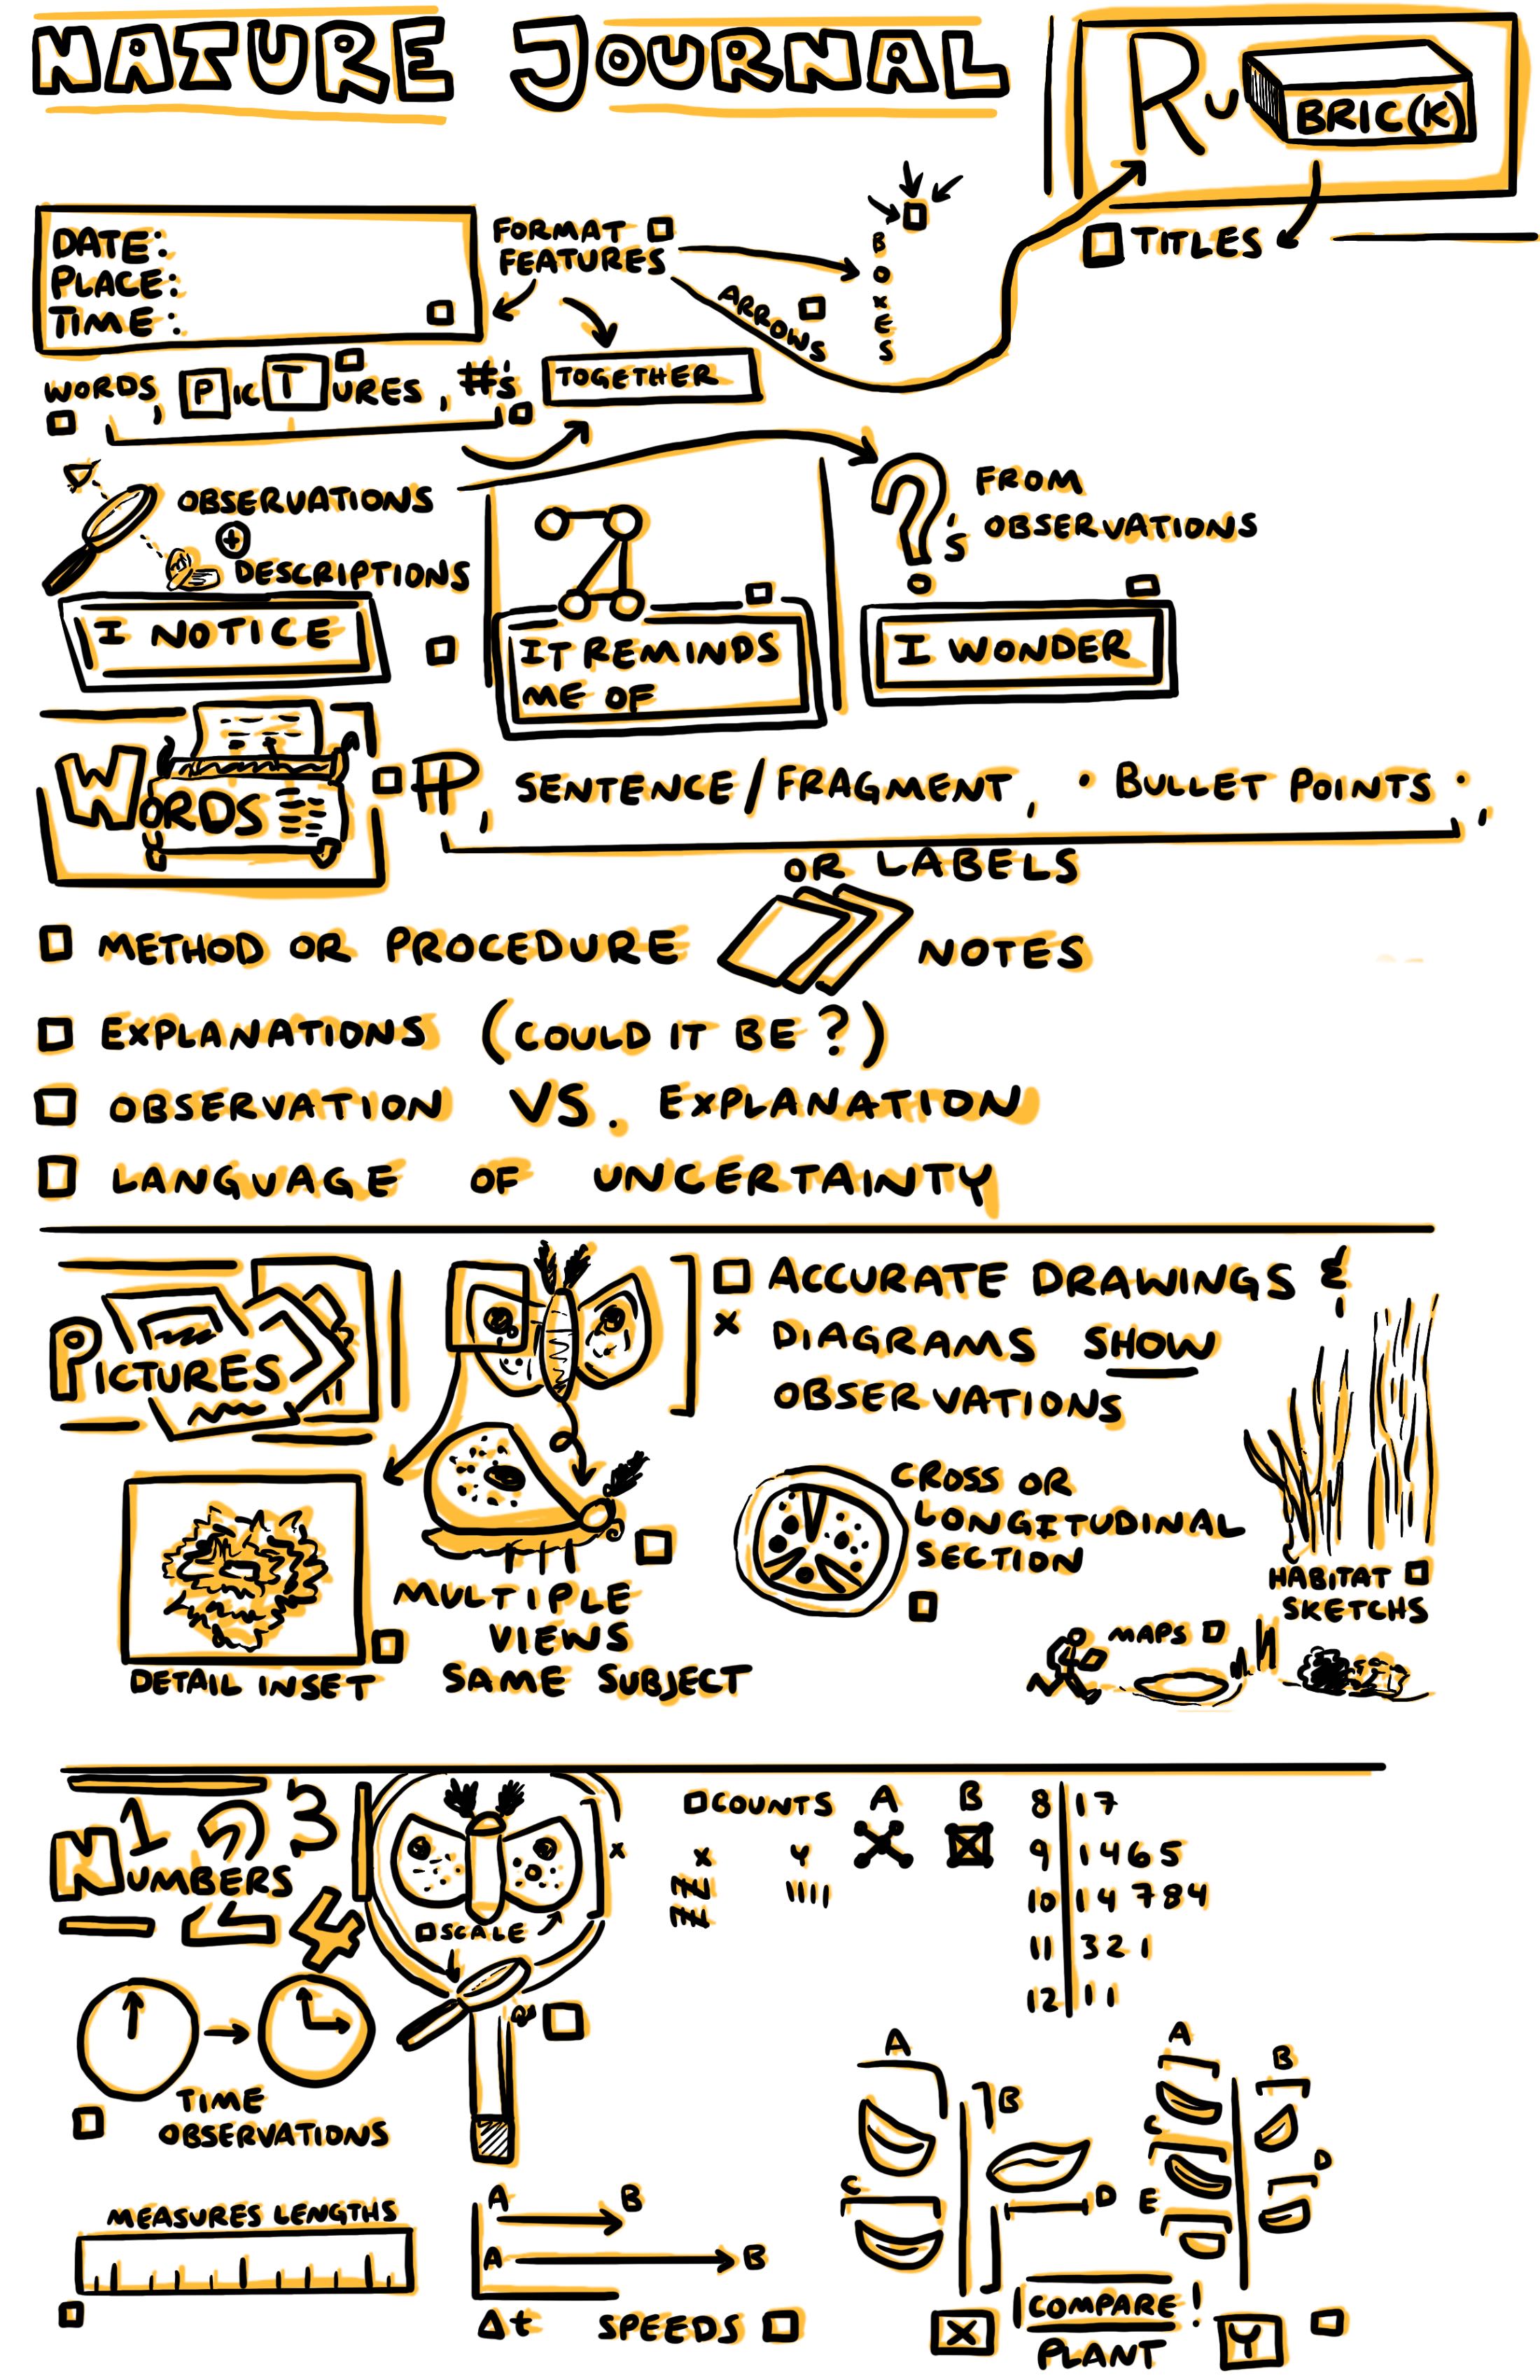 NATURE JOURNAL
RU BRIC(K)
DATE:
PLACE:
TIME:
FORMAT
FEATURES
ARROWS
BOXES
TITLES
WORDS, PICTURES, #'s
TOGETHER
OBSERVATIONS
+
DESCRIPTIONS
I NOTICE
IT REMINDS
ME OF
?'s FROM
OBSERVATIONS
I WONDER
WORDS
¶, SENTENCE/FRAGMENT, • BULLET POINTS •,
OR LABELS
METHOD OR PROCEDURE NOTES
EXPLANATIONS (COULD IT BE?)
OBSERVATION VS. EXPLANATION
LANGUAGE OF UNCERTAINTY
PICTURES
ACCURATE DRAWINGS &
X DIAGRAMS SHOW
OBSERVATIONS
DETAIL INSET
MULTIPLE
VIEWS
SAME SUBJECT
CROSS OR
LONGITUDINAL
SECTION
HABITAT
SKETCHS
MAPS
1 2 3
NUMBERS
4
SCALE
X
COUNTS
X Y
A B
8 | 17
9 | 1465
10 | 14 784
11 | 321
12 | 11
TIME
OBSERVATIONS
MEASURES LENGTHS
A B
A B
Δt SPEEDS
A
B
C
D
A
B
C
D
E
X
COMPARE!
PLANT
Y